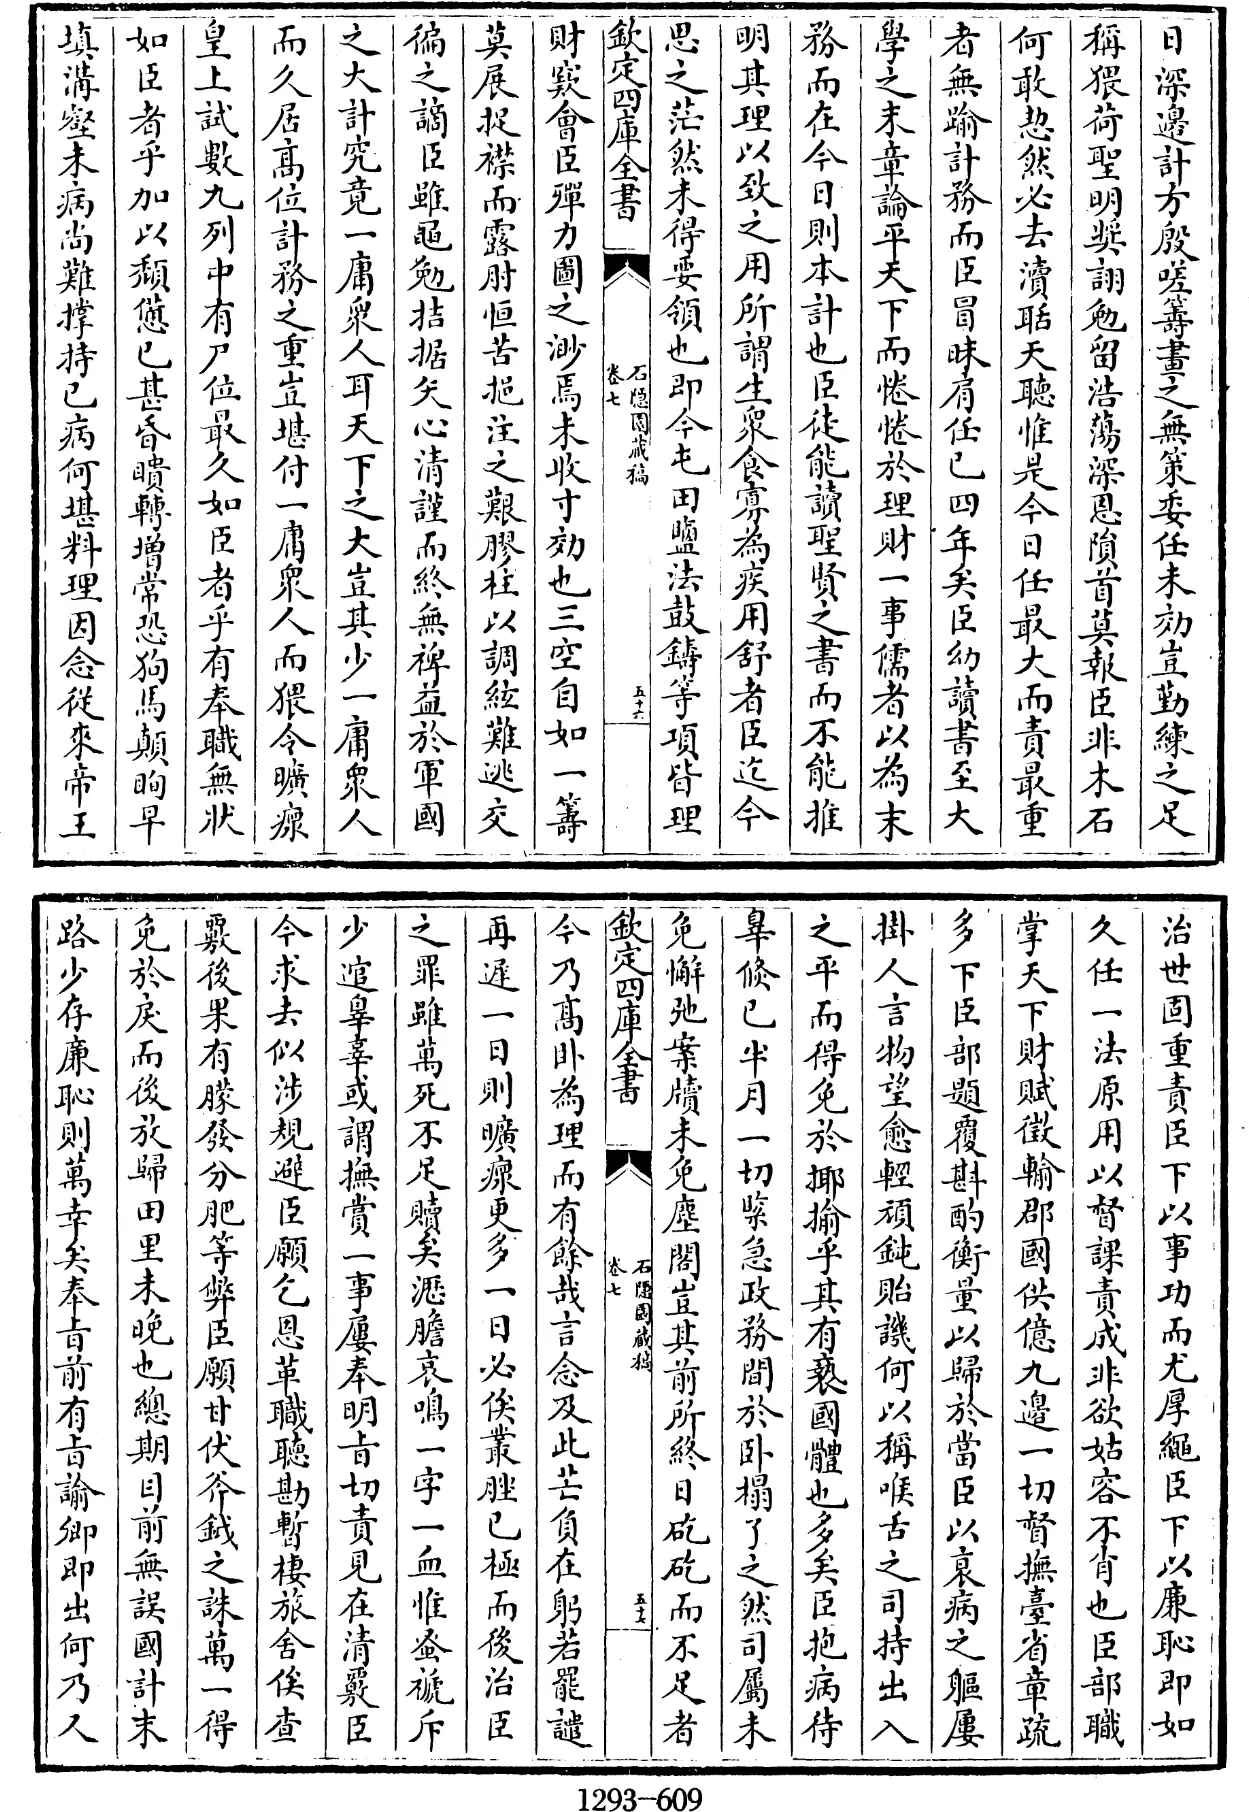 日深邊計方殷嗟籌畫之無策委任未効豈勤練之足
稱猥荷聖明奬詡勉留浩蕩深恩隕首莫報臣非木石
何敢恝然必去瀆聒天聽惟是今日任最大而責最重
者無踰計務而臣冒昧肩任已四年矣臣幼讀書至大
學之末章論平天下而惓惓於理財一事儒者以為末
務而在今日則本計也臣徒能讀聖賢之書而不能推
明其理以致之用所謂生衆食寡為疾用舒者臣迄今
思之茫然未得要領也即今屯田鹽法鼓鑄等項皆理
欽定四庫全書
石隱園藏稿
卷七
五十六
財窽會臣殫力圖之渺焉未收寸効也三空自如一籌
莫展捉襟而露肘恒苦挹注之艱膠柱以調絃難逃交
徧之謫臣雖黽勉拮据矢心清謹而終無裨益於軍國
之大計究竟一庸衆人耳天下之大豈其少一庸衆人
而久居高位計務之重豈堪付一庸衆人而猥令曠瘝
皇上試數九列中有尸位最久如臣者乎有奉職無狀
如臣者乎加以頽憊已甚昏瞶轉增常恐狗馬顛眴早
填溝壑未病尚難撑持已病何堪料理因念從來帝王
治世固重責臣下以事功而尤厚繩臣下以廉恥即如
久任一法原用以督課責成非欲姑容不肖也臣部職
掌天下財賦徵輸郡國供億九邊一切督撫臺省章疏
多下臣部題覆斟酌衡量以歸於當臣以衰病之軀屢
掛人言物望愈輕頑鈍貽譏何以稱喉舌之司持出入
之平而得免於揶揄乎其有褻國體也多矣臣抱病待
辠倐已半月一切緊急政務間於卧榻了之然司屬未
免懈弛案牘未免塵閣豈其前所終日矻矻而不足者
欽定四庫全書
石隱園藏稿
卷七
五十七
今乃高卧為理而有餘哉言念及此芒負在躬若罷譴
再遲一日則曠瘝更多一日必俟叢脞已極而後治臣
之罪雖萬死不足贖矣瀝膽哀鳴一字一血惟蚤褫斥
少逭辠辜或謂撫賞一事屢奉明旨切責見在清覈臣
今求去似涉規避臣願乞恩革職聽勘暫棲旅舍俟查
覈後果有朦發分肥等弊臣願甘伏斧鉞之誅萬一得
免於戾而後放歸田里未晚也總期目前無誤國計末
路少存廉恥則萬幸矣奉旨前有旨諭卿即出何乃人
1293—609